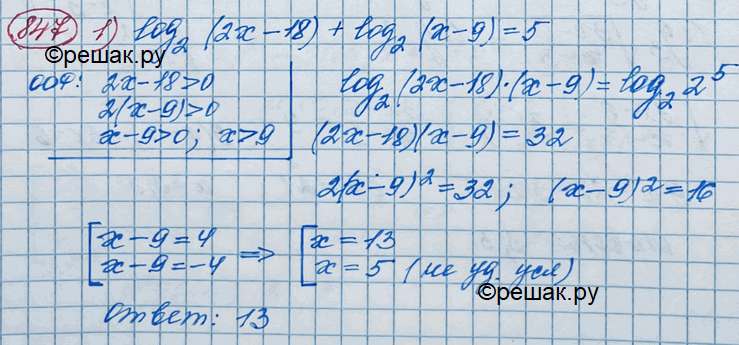 847 1) log₂ (2x-18) + log₂ (x-9) = 5
©решак.ру
ООФ: 2x-18>0
2(x-9)>0
x-9>0; x>9
log₂ (2x-18)·(x-9) = log₂ 2⁵
(2x-18)(x-9) = 32
2(x-9)² = 32; (x-9)² = 16
[x-9=4 => [x=13
[x-9=-4 [x=5 (не уд. усл)
©решак.ру
Ответ: 13